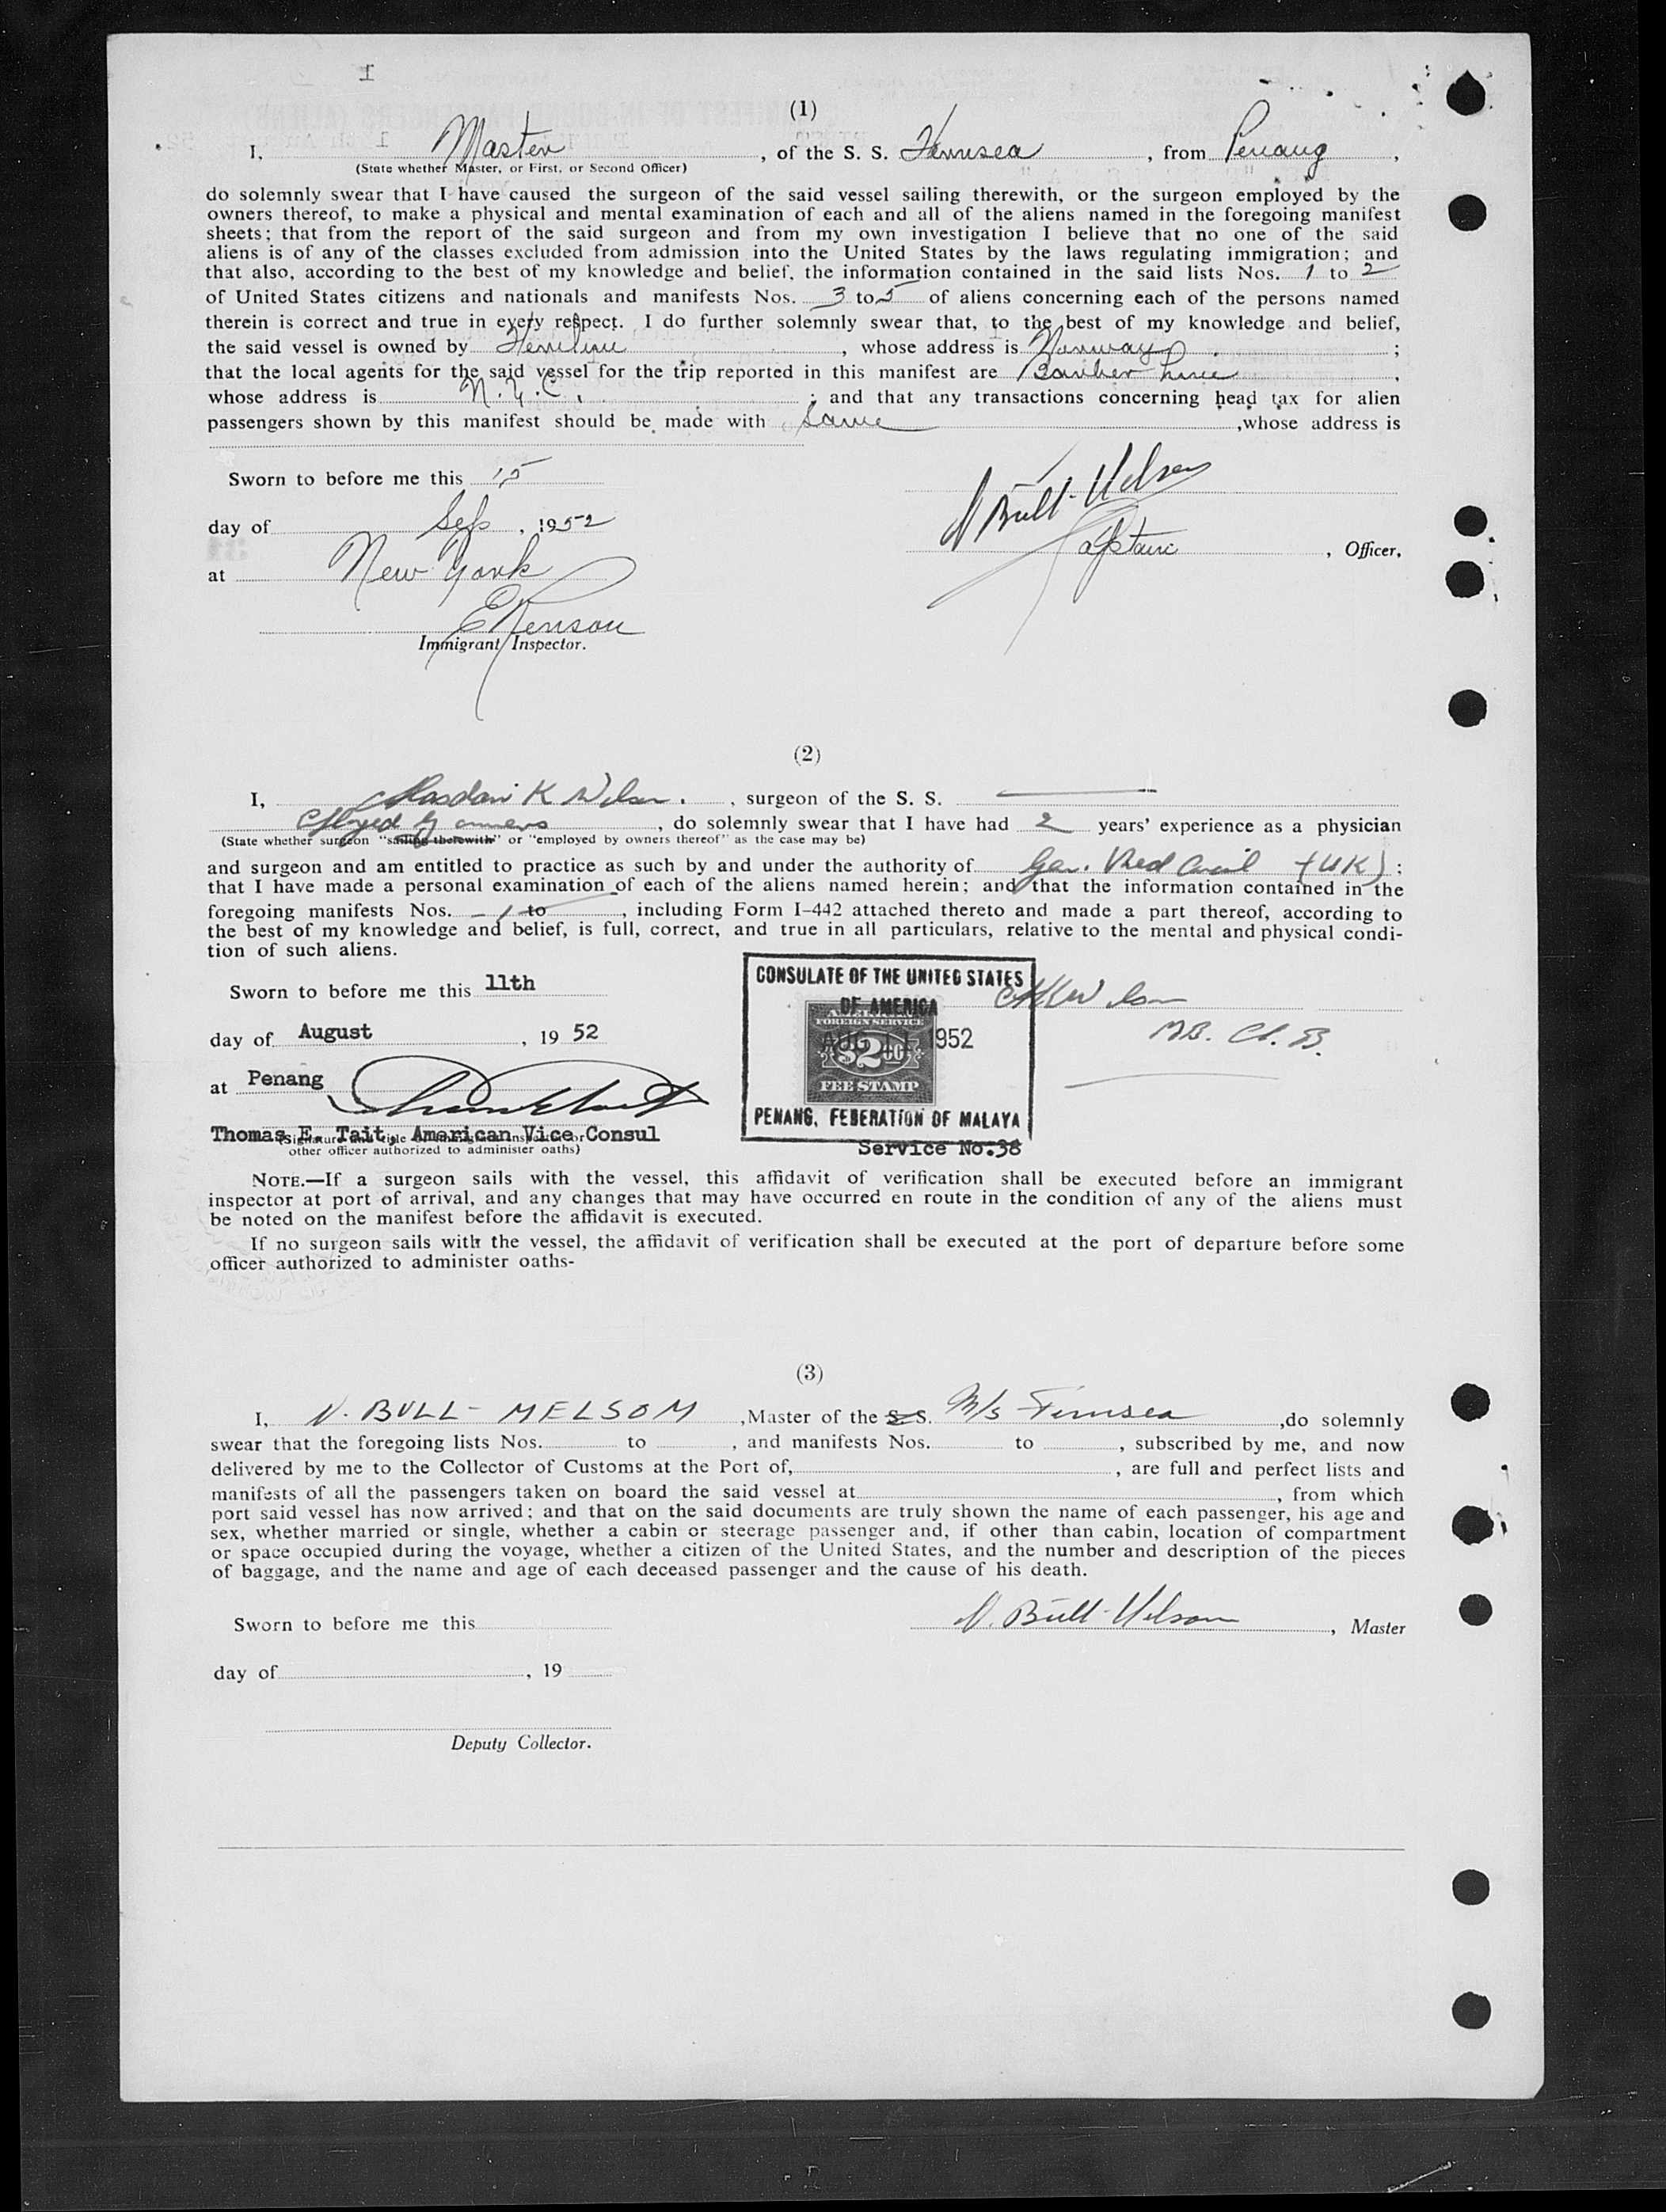 I
(1)
I, Master, of the S. S. Fernsea, from Penang,
(State whether Master, or First, or Second Officer)
do solemnly swear that I have caused the surgeon of the said vessel sailing therewith, or the surgeon employed by the
owners thereof, to make a physical and mental examination of each and all of the aliens named in the foregoing manifest
sheets; that from the report of the said surgeon and from my own investigation I believe that no one of the said
aliens is of any of the classes excluded from admission into the United States by the laws regulating immigration; and
that also, according to the best of my knowledge and belief, the information contained in the said lists Nos. 1 to 2
of United States citizens and nationals and manifests Nos. 3 to 5 of aliens concerning each of the persons named
therein is correct and true in every respect. I do further solemnly swear that, to the best of my knowledge and belief,
the said vessel is owned by Fernline, whose address is Norway;
that the local agents for the said vessel for the trip reported in this manifest are Barber Line,
whose address is N.Y.C.; and that any transactions concerning head tax for alien
passengers shown by this manifest should be made with Same, whose address is
Sworn to before me this 15
N Bull-Melsom
day of Sep, 1952
Captain, Officer,
at New York
Immigrant Inspector.
(2)
I, K Wilson., surgeon of the S. S.
employed by owners, do solemnly swear that I have had 2 years' experience as a physician
(State whether surgeon "sailing therewith" or "employed by owners thereof" as the case may be)
and surgeon and am entitled to practice as such by and under the authority of Gen. Med Council (UK);
that I have made a personal examination of each of the aliens named herein; and that the information contained in the
foregoing manifests Nos. - 1 to, including Form I-442 attached thereto and made a part thereof, according to
the best of my knowledge and belief, is full, correct, and true in all particulars, relative to the mental and physical condi-
tion of such aliens.
CONSULATE OF THE UNITED STATES
OF AMERICA
Sworn to before me this 11th
AMERICAN
FOREIGN SERVICE
AUG 11 1952
$2.00
FEE STAMP
PENANG, FEDERATION OF MALAYA
Service No:38
Wilson
MB. Ch. B.
day of August, 1952
at Penang
Thomas E. Tait, American Vice Consul
(Signature and title of immigrant inspector or
other officer authorized to administer oaths)
NOTE.—If a surgeon sails with the vessel, this affidavit of verification shall be executed before an immigrant
inspector at port of arrival, and any changes that may have occurred en route in the condition of any of the aliens must
be noted on the manifest before the affidavit is executed.
If no surgeon sails with the vessel, the affidavit of verification shall be executed at the port of departure before some
officer authorized to administer oaths-
(3)
I, N. BULL-MELSOM, Master of the S.S. M/s Fernsea, do solemnly
swear that the foregoing lists Nos. to, and manifests Nos. to, subscribed by me, and now
delivered by me to the Collector of Customs at the Port of, , are full and perfect lists and
manifests of all the passengers taken on board the said vessel at, from which
port said vessel has now arrived; and that on the said documents are truly shown the name of each passenger, his age and
sex, whether married or single, whether a cabin or steerage passenger and, if other than cabin, location of compartment
or space occupied during the voyage, whether a citizen of the United States, and the number and description of the pieces
of baggage, and the name and age of each deceased passenger and the cause of his death.
Sworn to before me this
N. Bull-Melsom, Master
day of, 19
Deputy Collector.